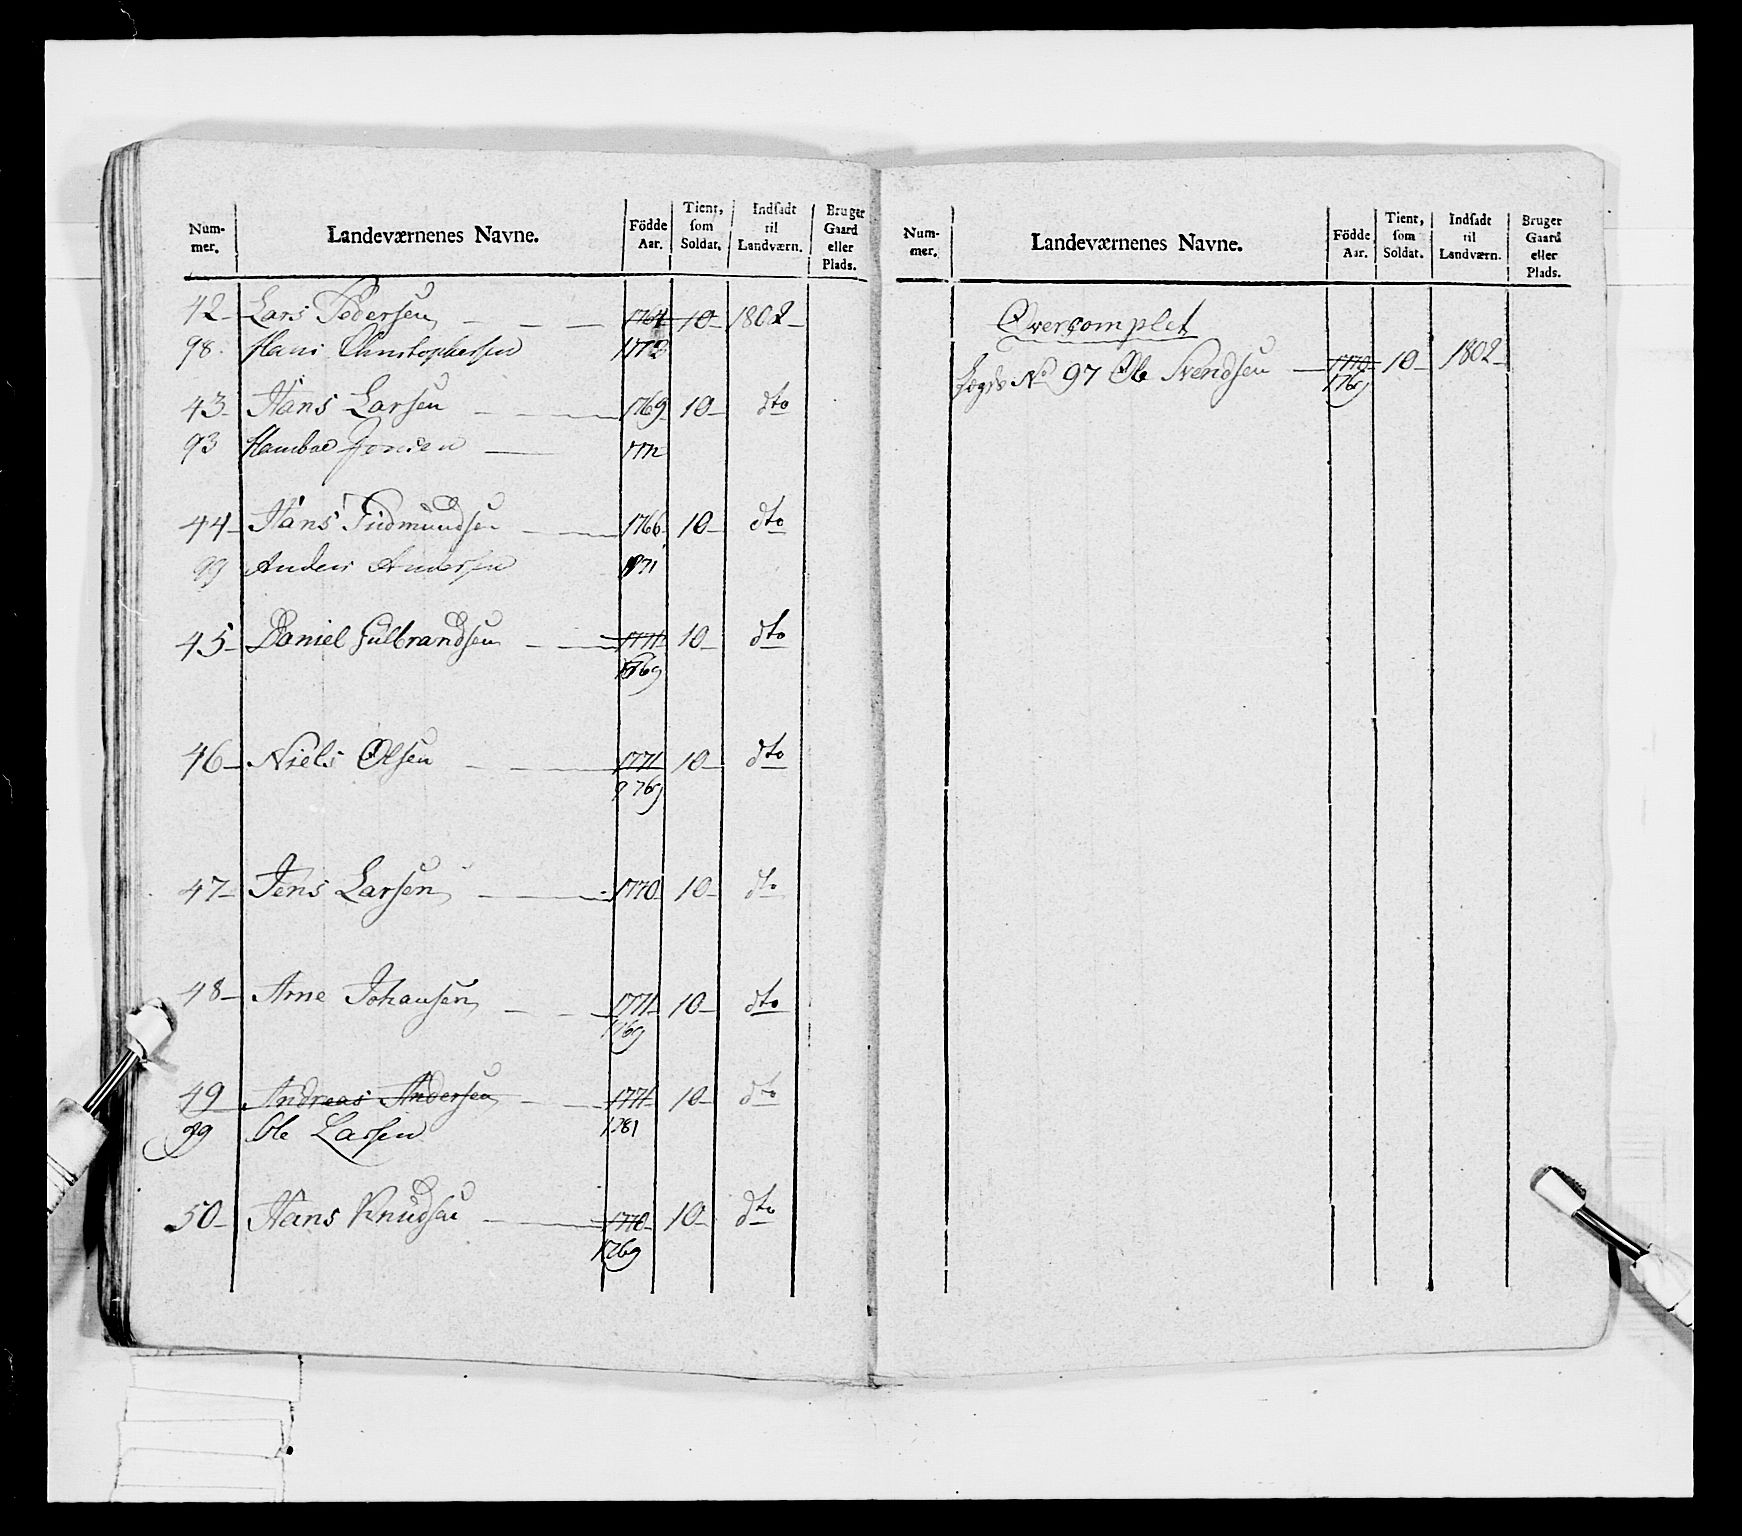 Num-
mer.
Landeværnenes Navne.
Födde
Aar.
Tient,
som
Soldat.
Indsadt
til
Landværn.
Bruger
Gaard
eller
Plads.
42 Lars Pedersen 1764 10 1802
98 Hans Christophersen 1772
43 Hans Larsen 1769 10 dto
93 Jonsen 1772
44 Hans Gudmundsen 1766 10 dto
99 Anders Andersen 1771
45 Daniel Gulbrandsen 1771 10 dto
1769
46 Niels Olsen 1771 10 dto
1769
47 Jens Larsen 1770 10 dto
48 Arne Johansen 1771 10 dto
1769
49 Andreas Andersen 1771 10 dto
99 Ole Larsen 1781
50 Hans Knudsen 1770 10 dto
1769
Num-
mer.
Landeværnenes Navne.
Födde
Aar.
Tient,
som
Soldat.
Indsadt
til
Landværn.
Bruger
Gaard
eller
Plads.
Overcomplet
No 97 Ole Svendsen 1770 10 1802
1769